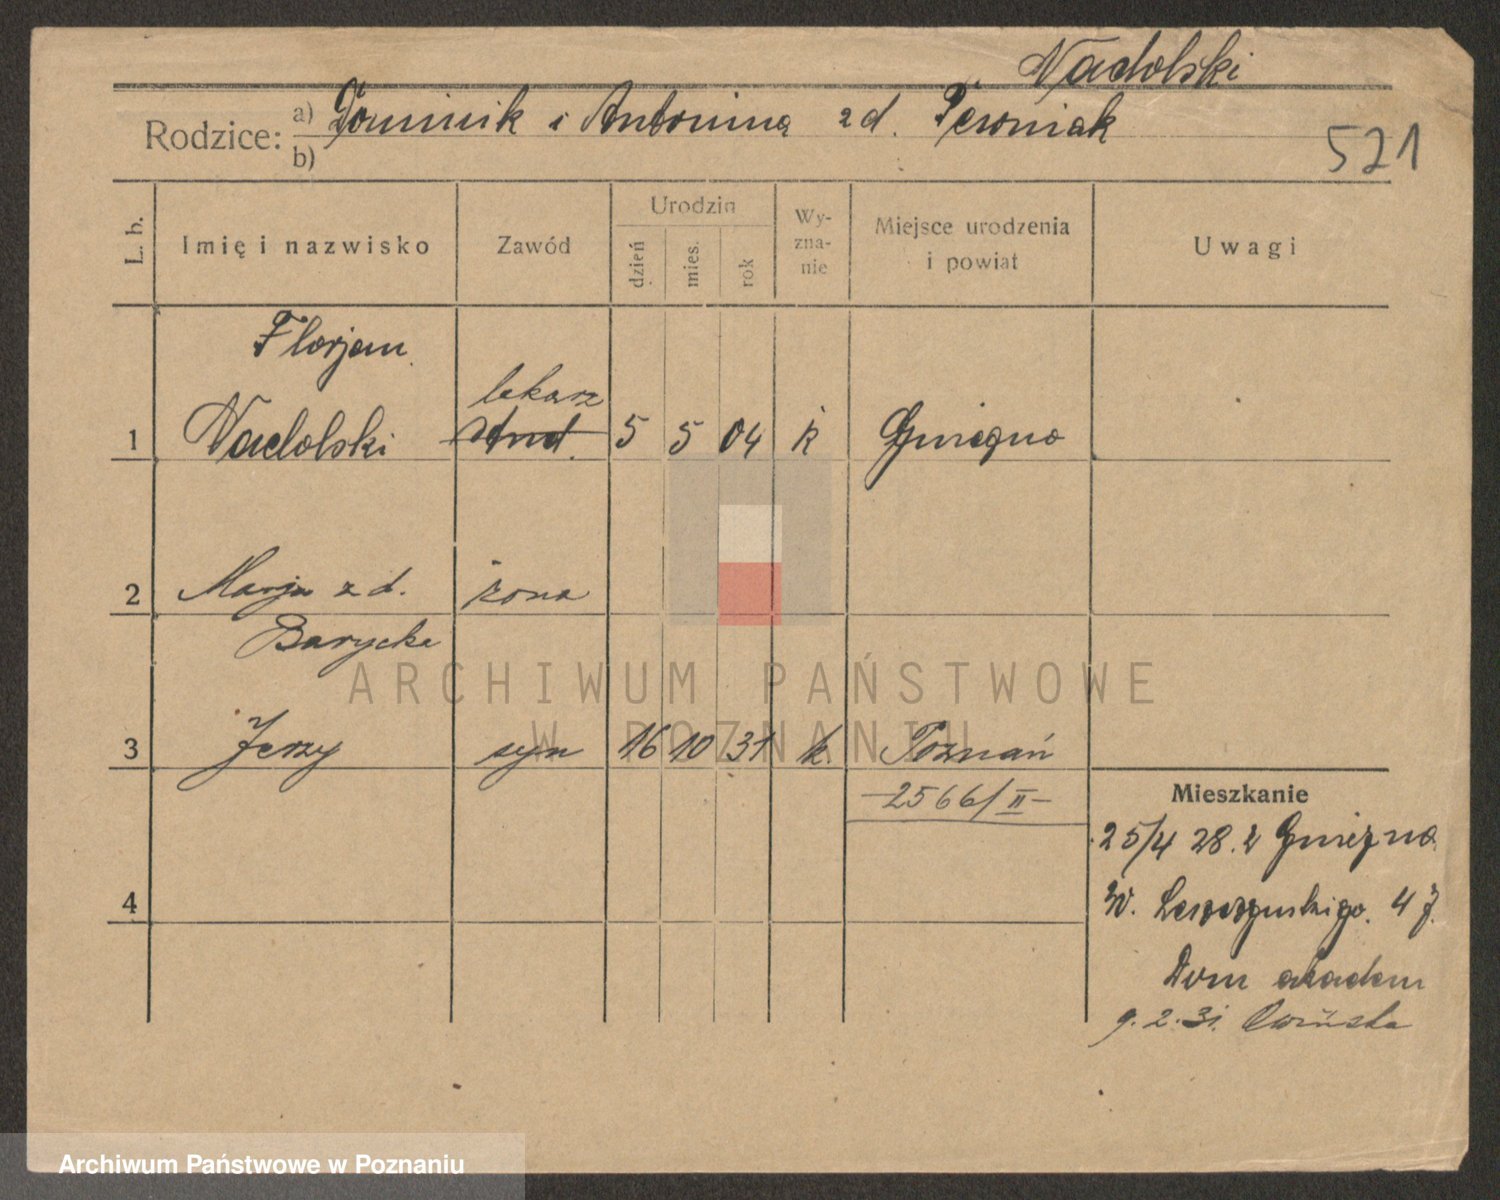 Nadolski
Rodzice: a) Dominik i Antonina zd. Peroniak
b)
521
L. b.
Imię i nazwisko
Zawód
Urodzin
dzień
mies.
rok
Wy-
zna-
nie
Miejsce urodzenia
i powiat
Uwagi
Florjan
lekarz
1 Nadolski stud. 5 5 04 k Gniezno
2 Marja z d. żona
Barycka
3 Jerzy syn 16 10 31 k Poznań
-2566/II-
Mieszkanie
25/4 28. z Gniezna
W. Leszczyńskiego. 4 J.
4
Dom akadem
9.2.31. Owińska
ARCHIWUM PAŃSTWOWE
W POZNANIU
Archiwum Państwowe w Poznaniu